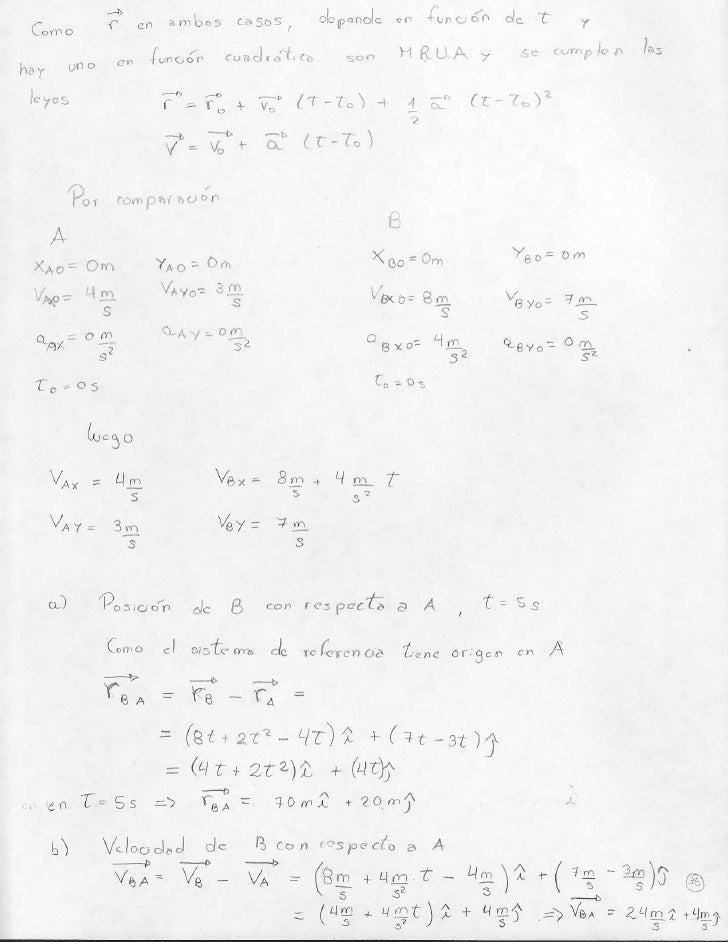 Como r⃗ en ambos casos, depende en función de t y
hay uno en función cuadrática son MRUA y se cumplen las
leyes r⃗ = r⃗₀ + v⃗₀ (t-t₀) + 1/2 a⃗ (t-t₀)²
V⃗ = V⃗₀ + a⃗ (t-t₀)
Por comparación
A B
X_A0 = 0m Y_A0 = 0m X_B0 = 0m Y_B0 = 0m
V_AX0 = 4 m/s V_AY0 = 3 m/s V_BX0 = 8 m/s V_BY0 = 7 m/s
a_AX = 0 m/s² a_AY = 0 m/s² a_BX0 = 4 m/s² a_BY0 = 0 m/s²
t₀ = 0s t₀ = 0s
luego
V_AX = 4 m/s V_BX = 8 m/s + 4 m/s² t
V_AY = 3 m/s V_BY = 7 m/s
a) Posición de B con respecto a A, t = 5s
Como el sistema de referencia tiene origen en A
r⃗_BA = r⃗_B - r⃗_A =
= (8t + 2t² - 4t) î + (7t - 3t) ĵ
= (4t + 2t²) î + (4t) ĵ
en t = 5s => r⃗_BA = 70 m î + 20 m ĵ
b) Velocidad de B con respecto a A
V⃗_BA = V⃗_B - V⃗_A = (8 m/s + 4 m/s² · t - 4 m/s) î + (7 m/s - 3 m/s) ĵ
= (4 m/s + 4 m/s² t) î + 4 m/s ĵ => V⃗_BA = 24 m/s î + 4 m/s ĵ